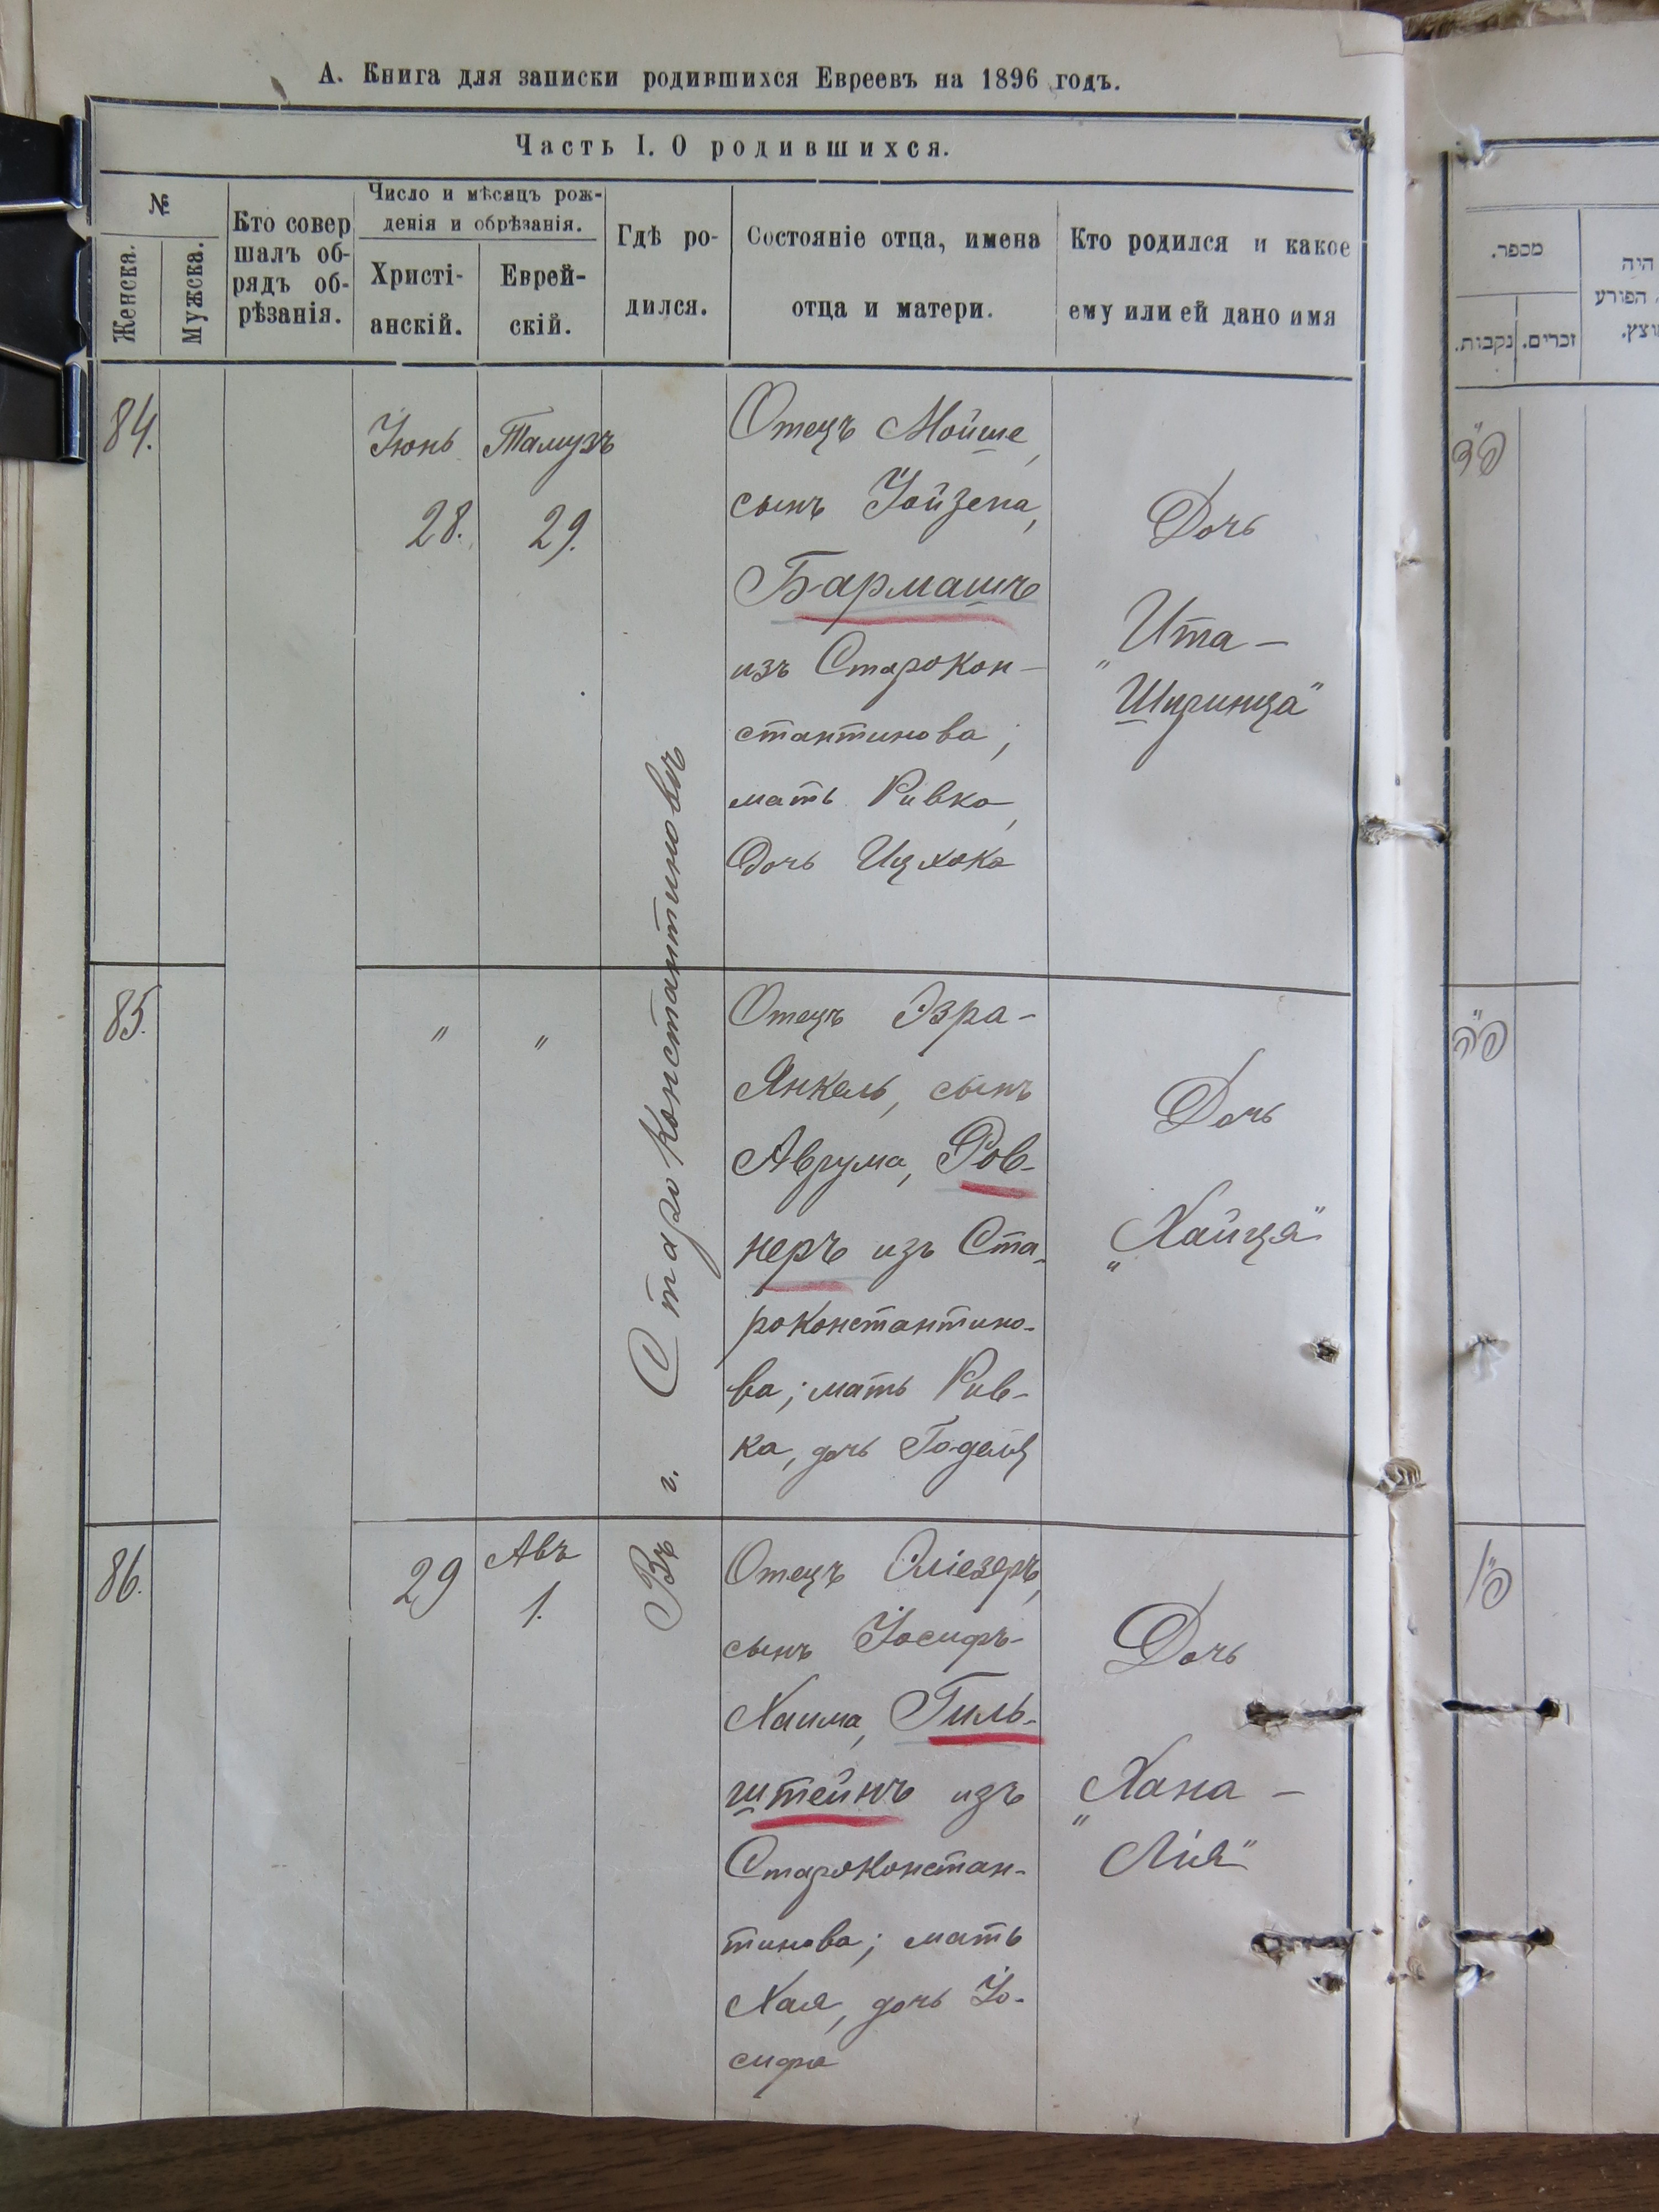 А. Книга для записки родившихся Евреевъ на 1896 годъ.
Часть I. О родившихся.
№
Женска.
Мужска.
Кто совер
шалъ об-
рядъ об-
рѣзанія.
Число и мѣсяцъ рож-
денія и обрѣзанія.
Христі-
анскій.
Еврей-
скій.
Гдѣ ро-
дился.
Состояніе отца, имена
отца и матери.
Кто родился и какое
ему или ей дано имя
84.
Іюнь
28.
Тамузъ
29.
Въ г. Староконстантиновѣ
Отецъ Мойше,
сынъ Іойзепа,
Бармашъ
изъ Старокон-
стантинова;
мать Ривка,
дочь Ицхока
Дочь
„Ита-
Шпринца“
85.
"
"
Отецъ Эзра-
Янкель, сынъ
Аврума, Ров-
неръ изъ Ста-
роконстантино-
ва; мать Рив-
ка, дочь
Дочь
„Хайця“
86.
29
Авъ
1.
Отецъ Эліезеръ,
сынъ Іосифъ-
Хаима, Гиль-
штейнъ изъ
Староконстан-
тинова; мать
Хая, дочь Іо-
сифа
Дочь
„Хана-
Лія“
מספר.
נקבות.
זכרים.
היה
הפורע
פ"ד
פ"ה
פ"ו